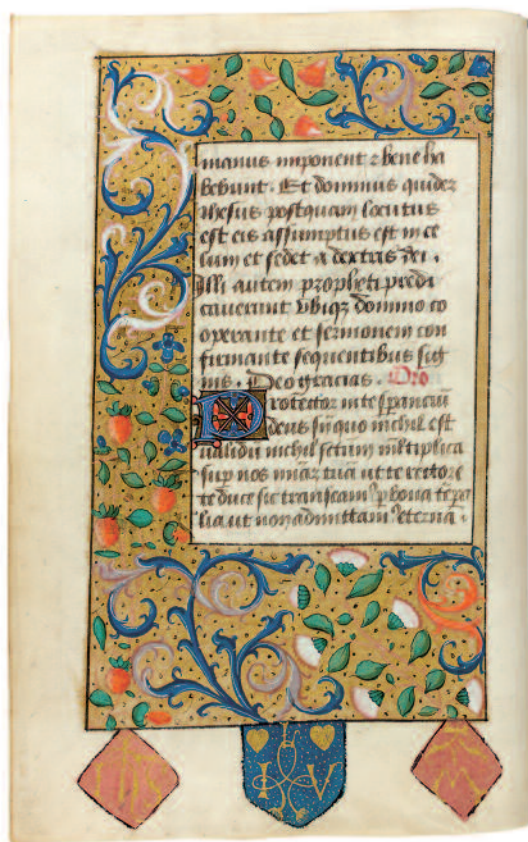 manus imponent ⁊ bene ha
bebunt. Et dominus quidez
ihesus postquam locutus
est eis assumptus est in ce
lum et sedet a dextris dei.
Illi autem propheti predi
cauerunt vbiqz domino co
operante et sermonem con
firmante sequentibus sig
nis. Deo gracias. Oro
Protector in te sperancium
deus sin quo nichil est
validu nichil sctum multiplica
sup nos miaz tuā ut te rectore
te duce sic transeam⁹ p bona tēpa
lia ut non admittam⁹ eternā.
I V